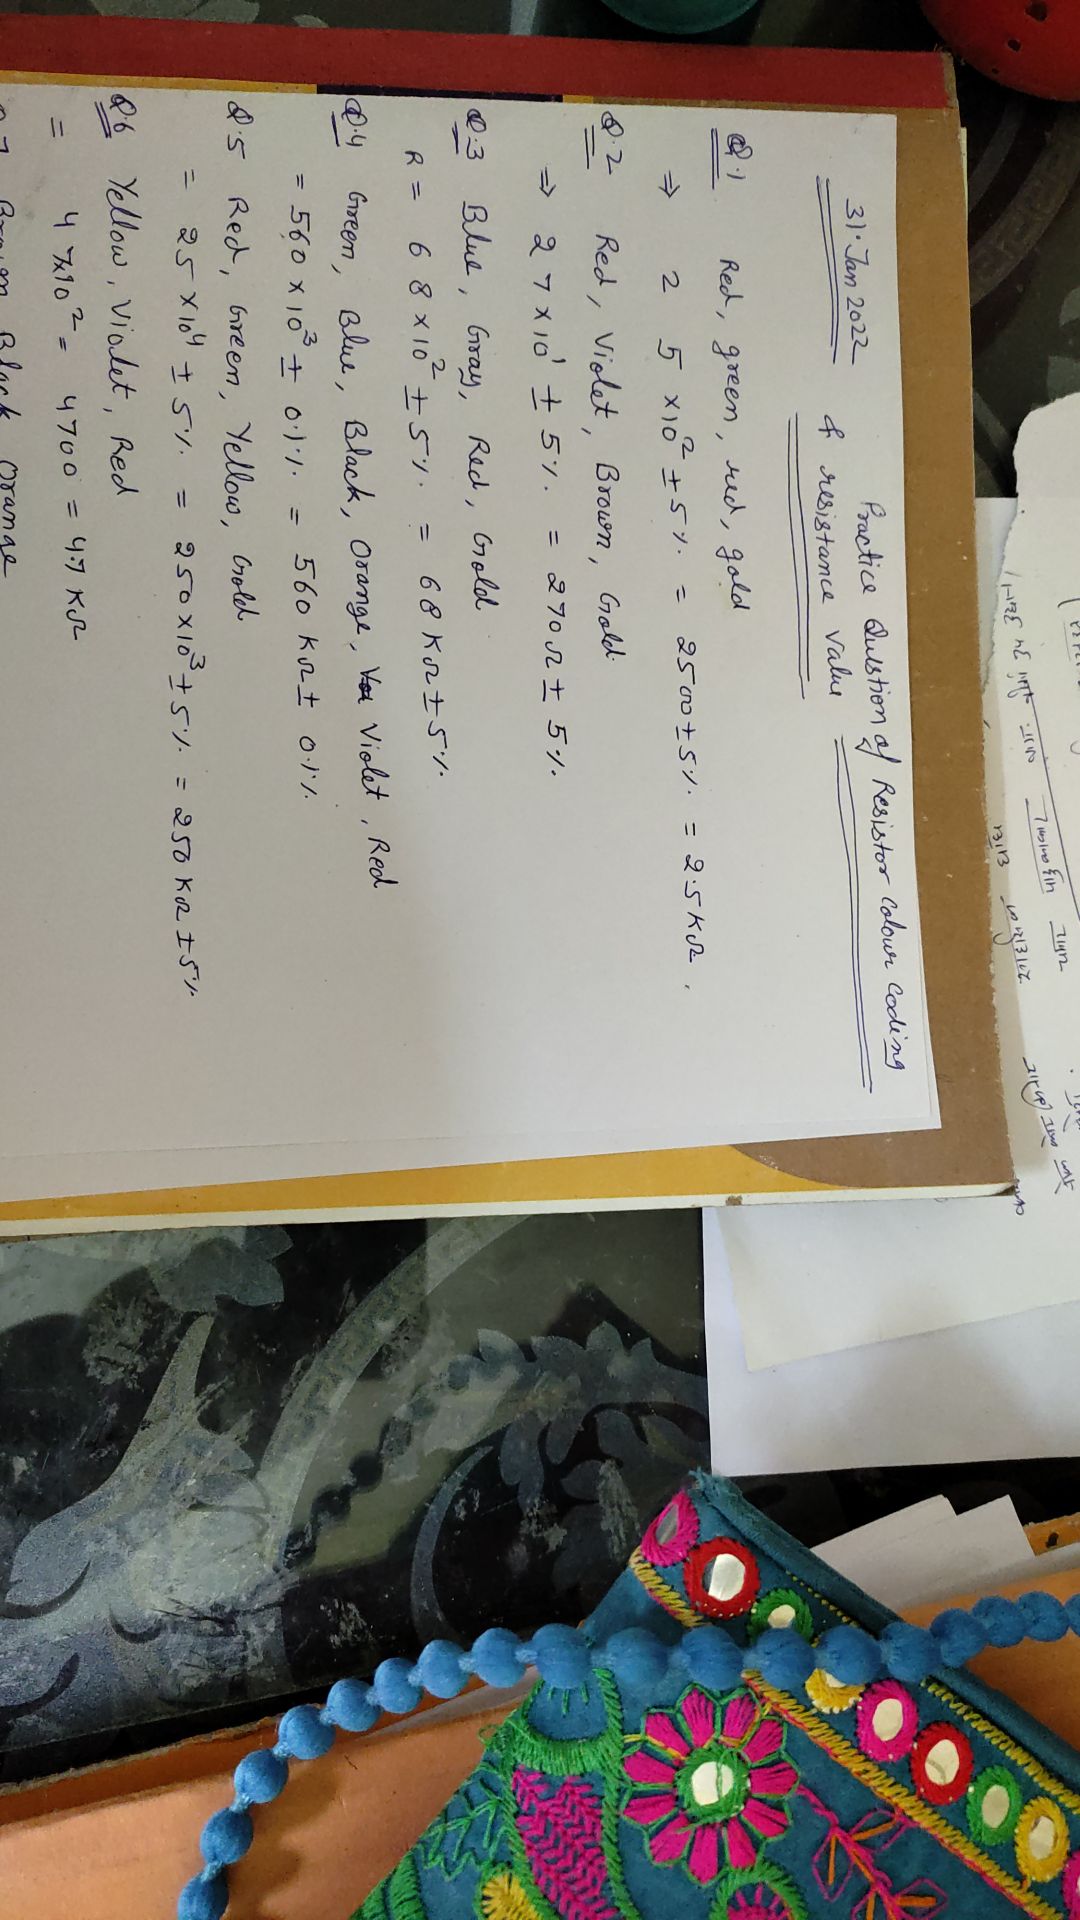 31. Jan 2022 Practice Qulstion of Resistor Colour Coding
& resistance value
Q.1 Red, green, red, gold
⇒ 2 5 x10² ± 5%. = 2500 ± 5%. = 2.5 KΩ.
Q.2 Red, Violet, Brown, Gold.
⇒ 27 x 10¹ ± 5%. = 270Ω ± 5%.
Q.3 Blue, Gray, Red, Gold
R = 68 x 10² ± 5%. = 68 KΩ ± 5%.
Q.4 Green, Blue, Black, Orange, Violet, Red
= 560 x 10³ ± 0.1%. = 560 KΩ ± 0.1%.
Q.5 Red, Green, Yellow, Gold
= 25 x 10⁴ ± 5%. = 250 x 10³ ± 5%. = 250 KΩ ± 5%.
Q6 Yellow, Violet, Red
= 47x10² = 4700 = 4.7 KΩ
Q.7 Brown Black Orange